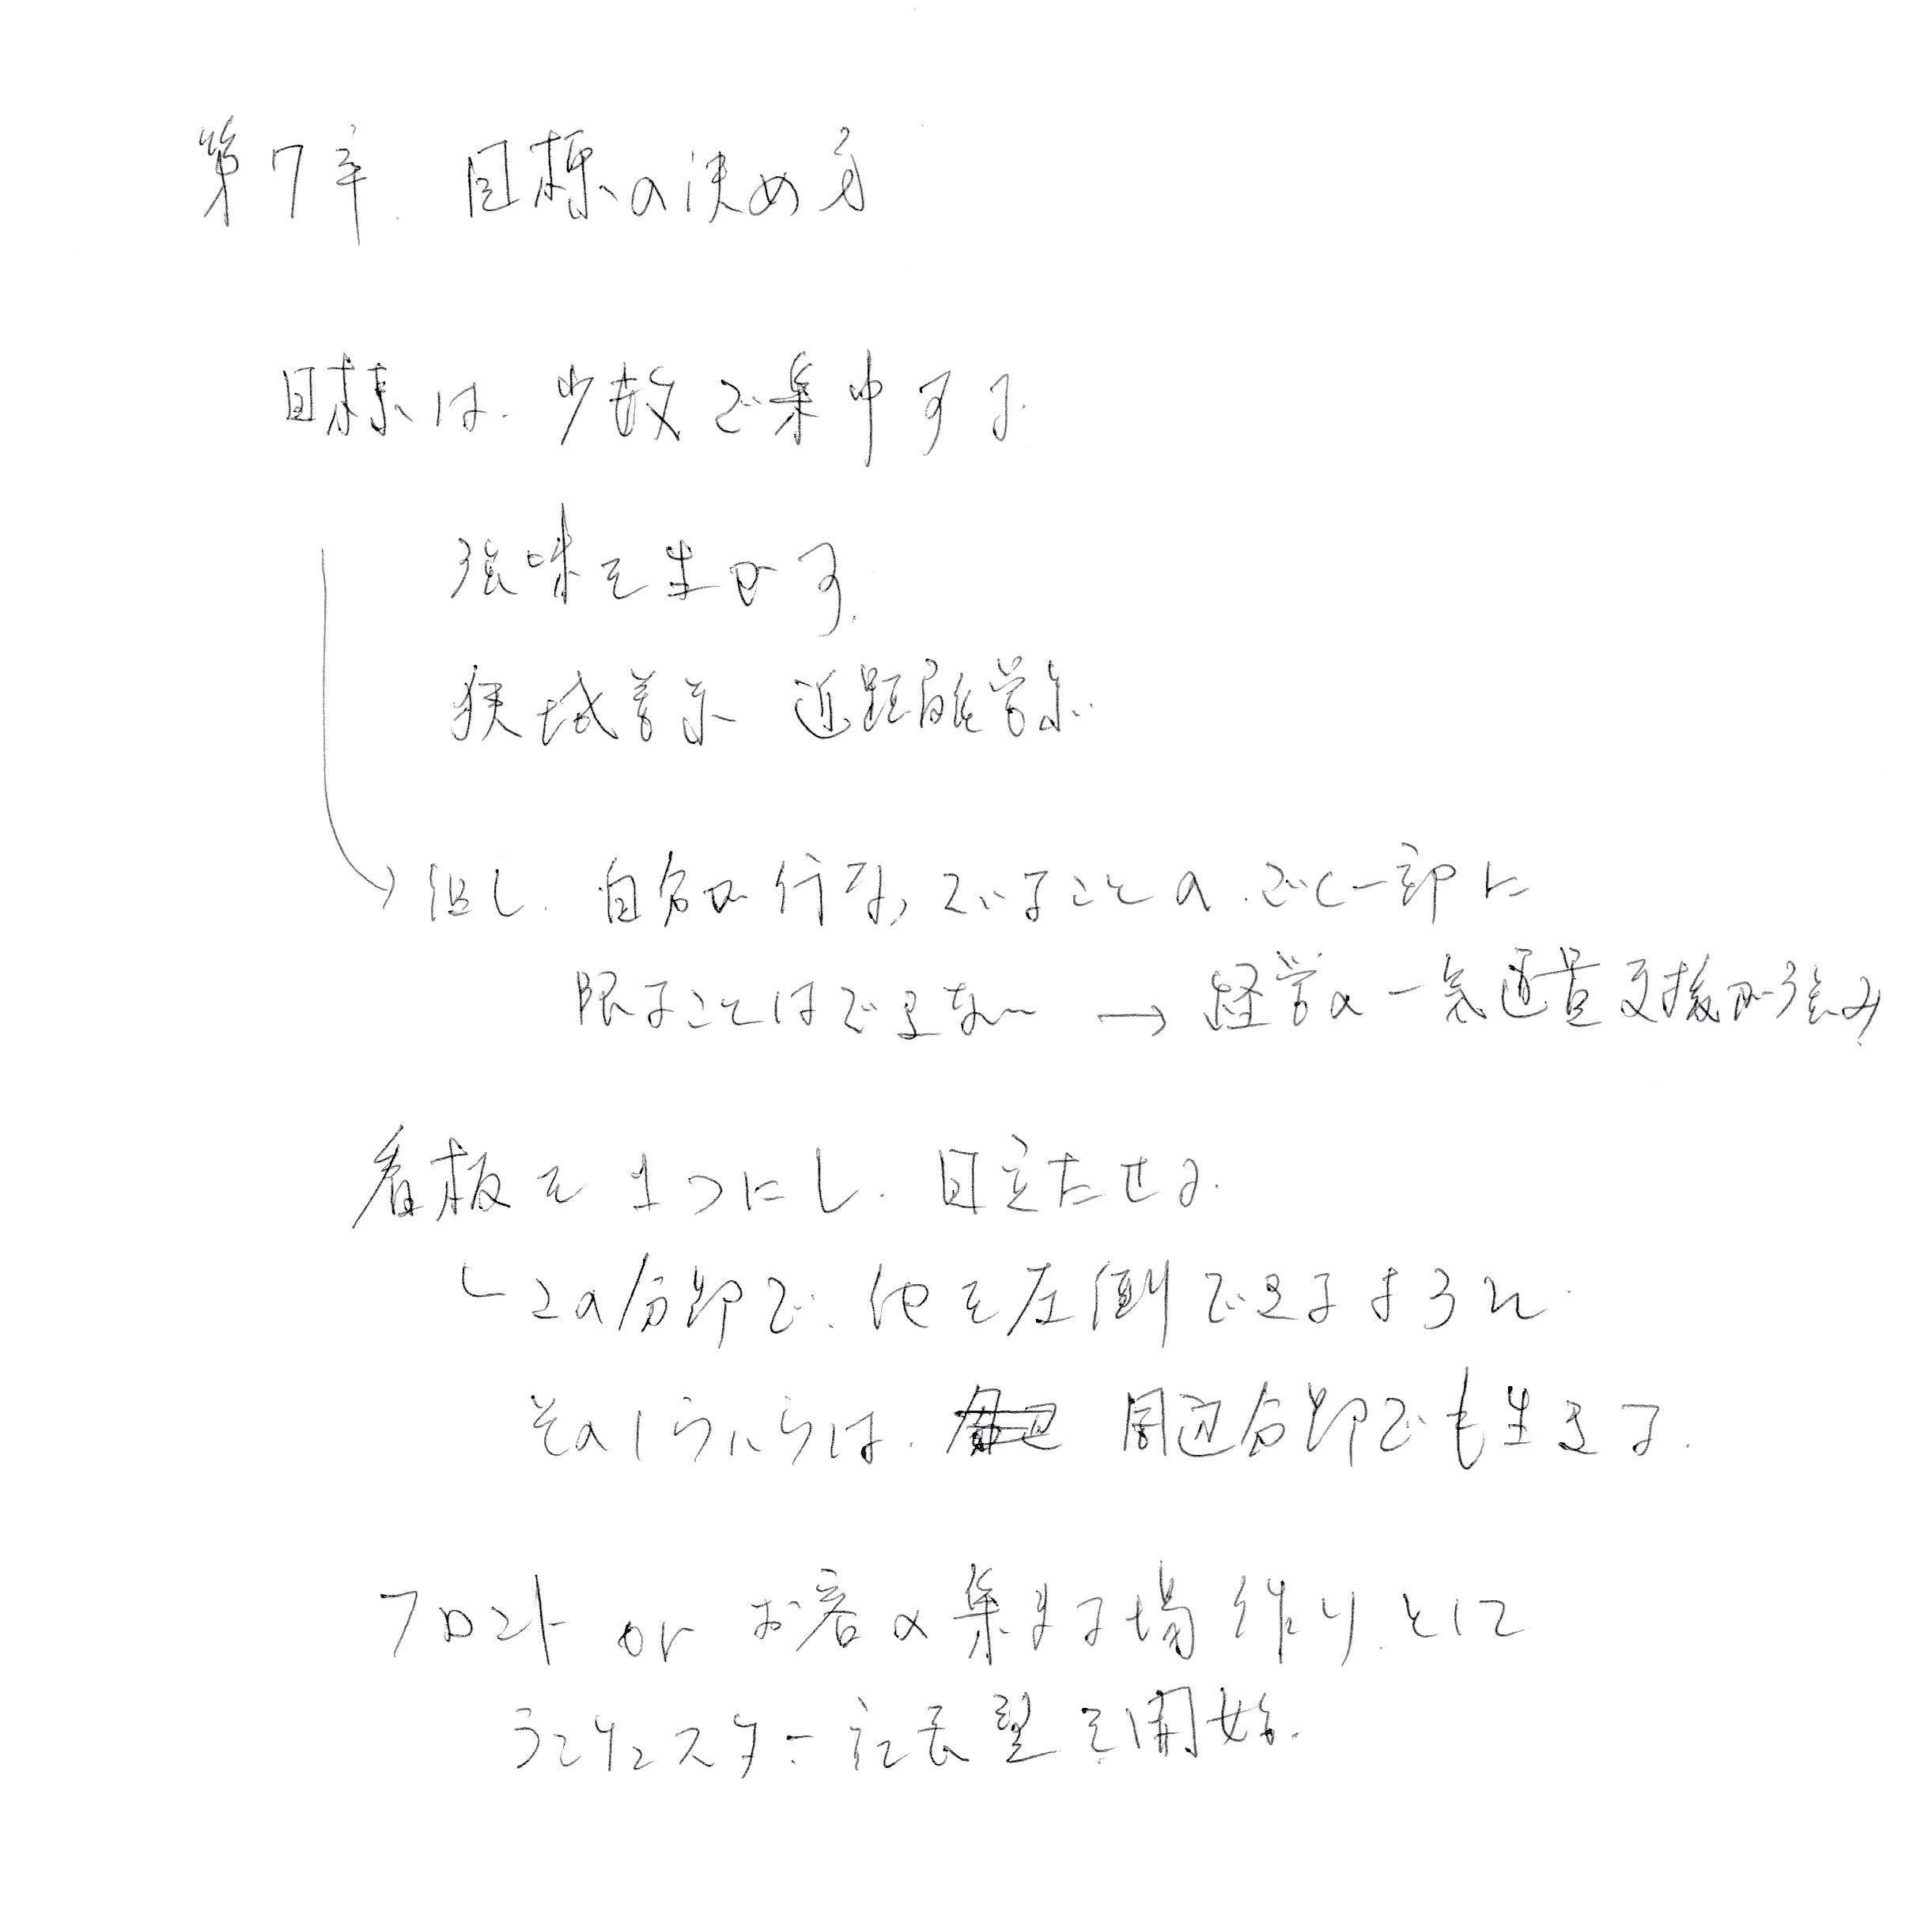 第7章 目標の決め方
目標は、少数で集中する
強味を生かす
狭域営業 近距離営業
但し、自分が行なっていることの、ごく一部に
限ることはできない → 経営の一気通貫支援が強み
看板を1つにし、目立たせる
この分野で、他を圧倒できる
そのうちは、周辺分野でも生きる
フロント or お客の集まる場作り、として
ランチェスター を開始